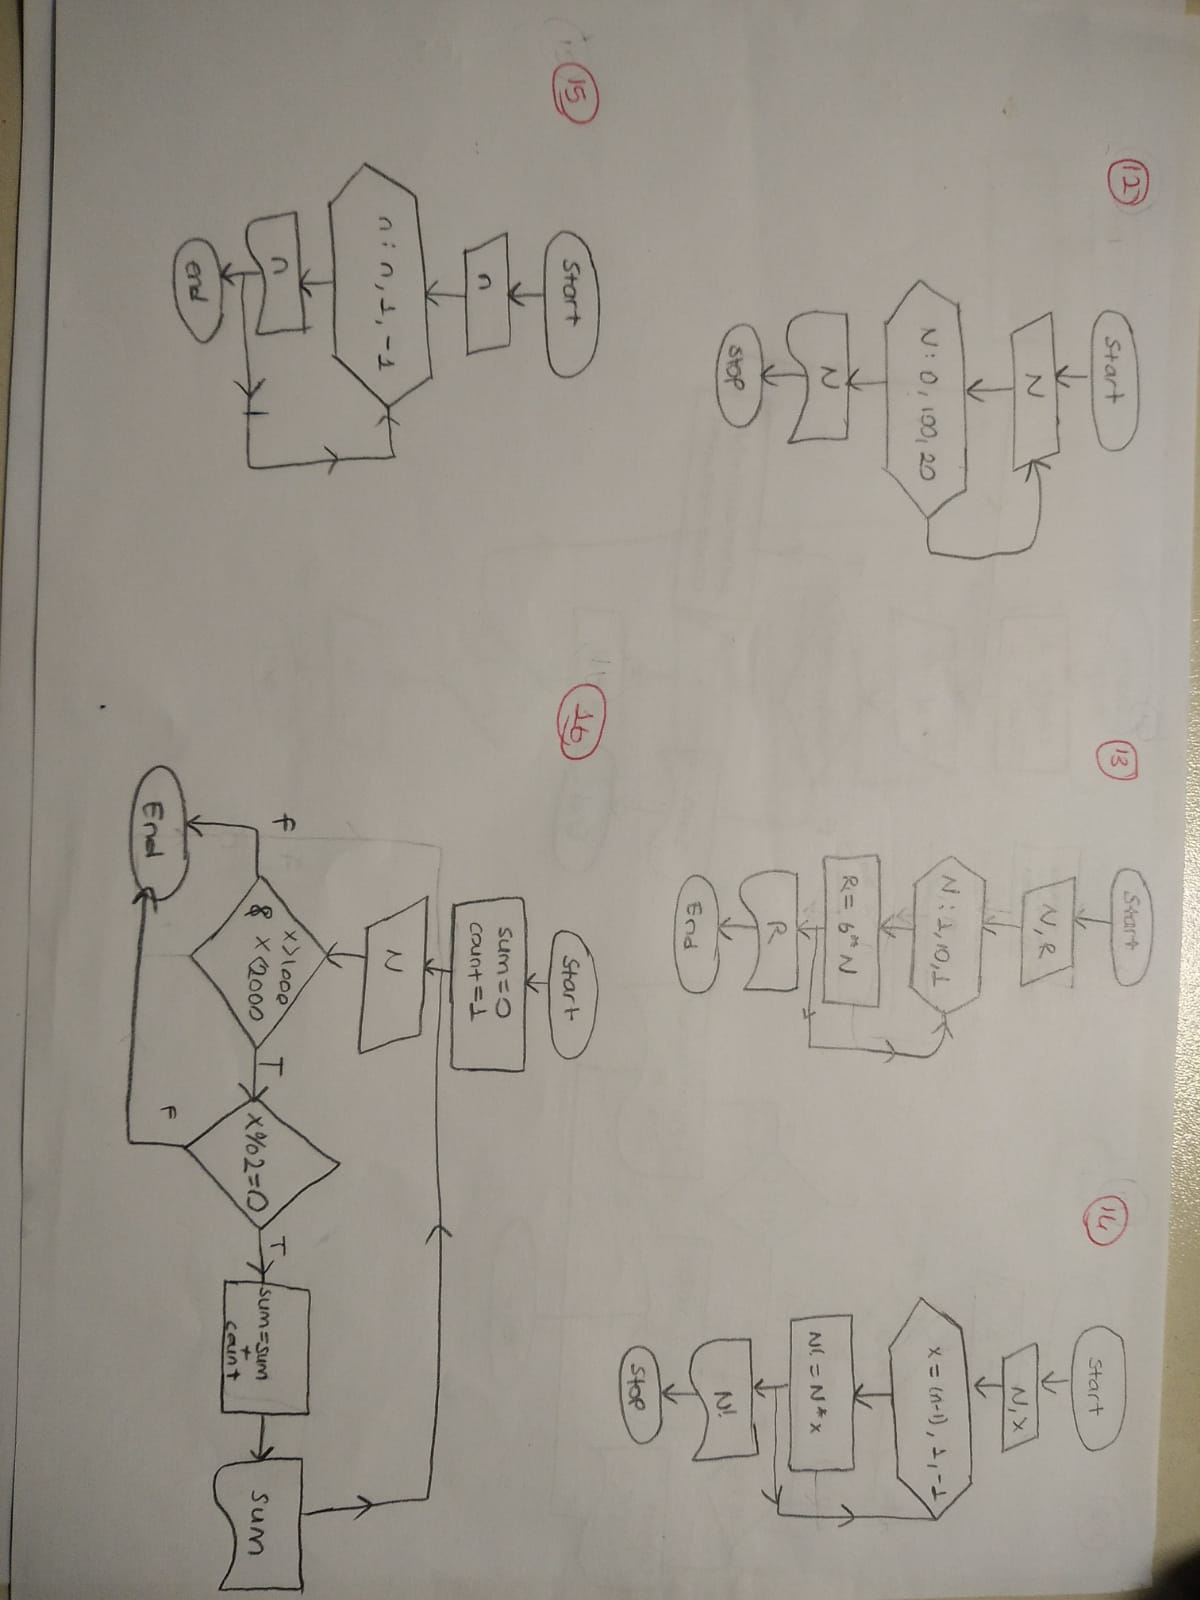 12
Start
N
N: 0, 100, 20
N
Stop
13
Start
N, R
N: 1, 10, 1
R = 6 * N
R
End
14
Start
N, X
x = (n-1), 1, -1
N! = N * x
N!
Stop
15
Start
n
n: n, 1, -1
n
end
16
Start
sum = 0
count = 1
N
x>1000
& x<2000
F
T
x%2=0
F
T
sum=sum
+
count
sum
End